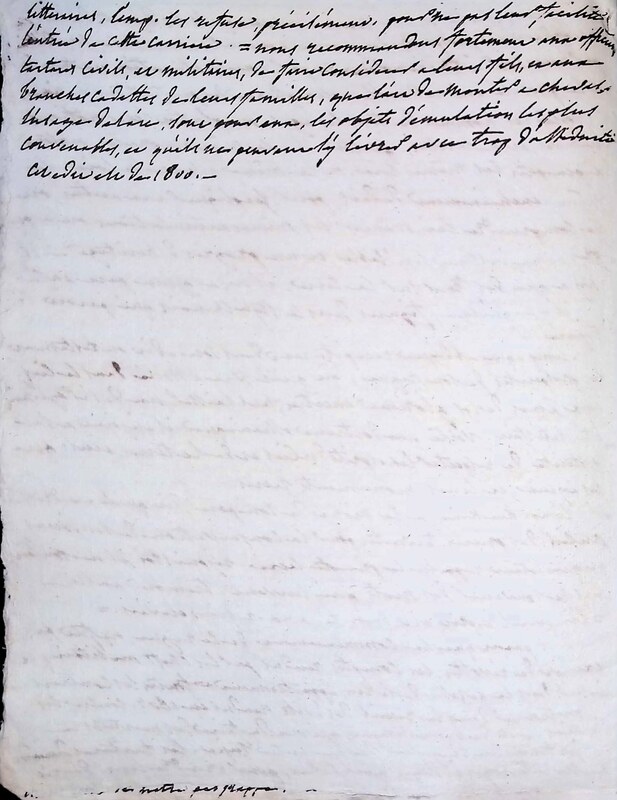 littéraires, l'emp. les refuse, précisément, pour ne pas leur faciliter
l'entrée de cette carriere. = nous recommandons fortement aux officiers
tartares civils, et militaires, de faire considerer a leurs fils, et aux
branches cadettes de leurs familles, que lire de monter a cheval,
l'usage de l'arc, sont pour eux, les objets d'émulation les plus
convenables, et qu'ils ne peuvent s'y livrer avec trop d'assiduité
cet edit est de 1800. —